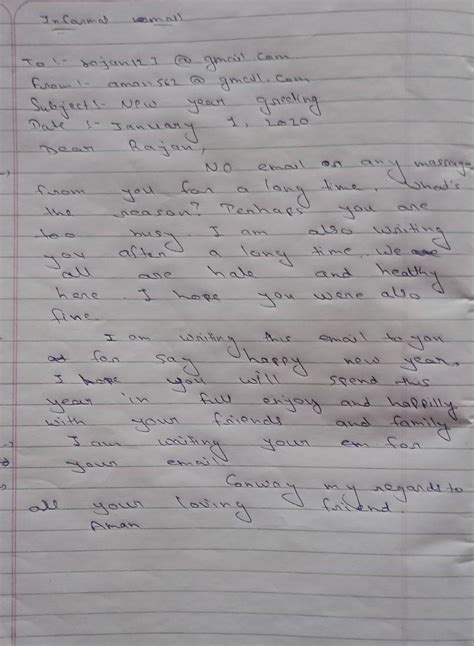 Informal email
To :- rajan123 @ gmail.com
From :- aman562 @ gmail.com
Subject :- New year greeting
Date :- January 1, 2020
Dear Rajan,
No email or any massage
from you for a long time. What's
the reason? Perhaps you are
too busy. I am also writing
you after a long time. We are
all are hale and healthy
here. I hope you were also
fine.
I am writing this email to you
for say happy new year.
I hope you will spend this
year in full enjoy and happilly
with your friends and family
I am waiting your em for
your email
Convay my regards to
all your loving friend.
Aman